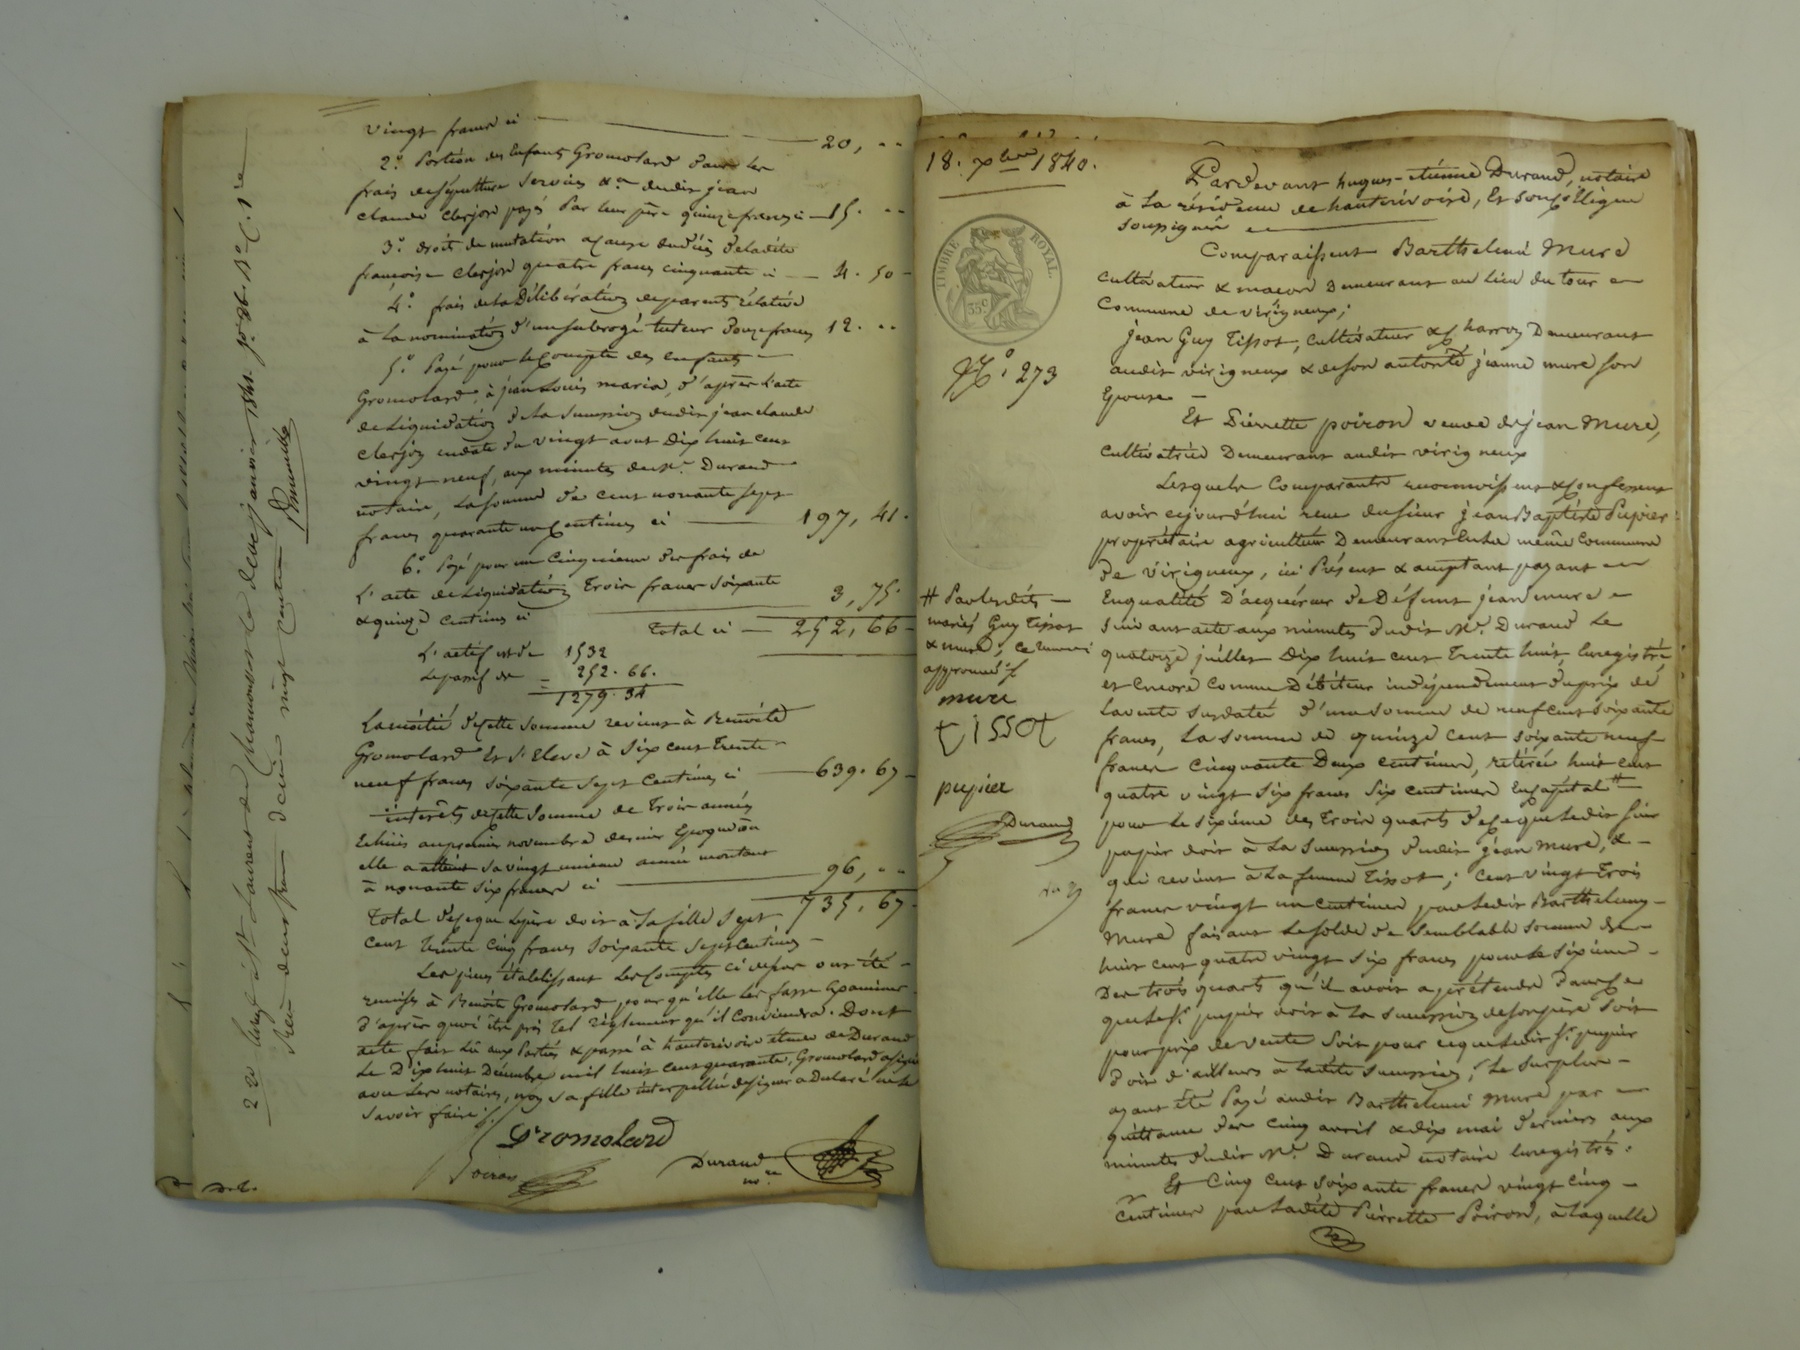 vingt francs ci 20, ..
2.° Portion des enfants Gromolard dans les
frais de sépulture services &.a dudit jean
claude clerjon payés par leur père quinze francs ci 15. ..
3.° droit de mutation a cause du décès de ladite
françoise clerjon quatre francs cinquante ci 4. 50
4.° frais de la Délibération de parents rélative
à la nomination d'un subrogé tuteur douze francs 12. ..
5.° Payé pour le compte des enfants
Gromolard, à jean Louis maria, d'après l'acte
de Liquidation de la succession dudit jean claude
clerjon en date du vingt aout Dix huit cent
vingt neuf, aux minutes de M.e Durand
notaire, la somme de cent nonante sept
francs quarante un centimes ci 197, 41.
6.° Payé pour un cinquieme des frais de
L'acte de Liquidation Trois francs soixante
& quinze centimes ci 3, 75.
Total ci 252, 66
L'actif est de 1532
Le passif de 252. 66.
1279. 34
La moitié de cette somme revient à Benoîte
Gromolard Et s'Eleve à six cent trente
neuf francs soixante sept centimes ci 639. 67
intérêts de cette somme de trois années
Echues au premier novembre dernier Epoque où
elle a atteint sa vingt unieme année montant
à nonante six francs ci 96, ..
Total de ce que le père doit à sa fille sept 735, 67
cent trente cinq francs soixante sept centimes
Les pieces établissant les comptes ci dessus ont été
remises à Benoite Gromolard pour qu'elle les fasse Examiner
d'après quoi être pris tel règlement qu'il conviendra. Dont
acte fait lû aux Parties & passé à hauterivoire étude de Durand
Le Dix huit Décembre mil huit cent quarante, Gromolard a signé
avec les notaires, non sa fille interpellée de signer a déclaré ne le
savoir faire ./.
Gromolard
Durand
n.re
18. xbre 1840.
TIMBRE ROYAL.
35.c
N.° 273
# Par lesdits
mariés Guy Tissot
& mure, ce renvoi
approuvé ./.
mure
pupier
Durand
Pardevant hugues-étienne Durand, notaire
à la résidence de hauterivoire, Et son collègue
soussignés
Comparaissent Barthelemi Mure
cultivateur & macon Demeurant au lieu du tour
Commune de virigneux;
jean Guy Tissot, cultivateur & charron Demeurant
audit virigneux & de son autorité jeanne mure son
Epouse
Et Pierrette poiron veuve de jean Mure,
cultivatrice Demeurant audit virigneux
Lesquels Comparants reconnoissent & confessent
avoir cejourd'hui reçu du sieur jean Baptiste Pupier
propriétaire agriculteur Demeurant en la même Commune
de virigneux, ici Présent & acceptant payant
En qualité D'acquéreur de Défunt jean mure
suivant acte aux minutes dudit M.e Durand Le
quatorze juillet Dix huit cent Trente huit, Enregistré
et Encore comme Débiteur indépendemment du prix de
la vente susdatée d'une somme de neuf cent soixante
francs, La somme de quinze cent soixante neuf
francs cinquante Deux centimes, retirée huit cent
quatre vingt six francs six centimes En capital #
pour le sixième des trois quarts de ce que ledit sieur
pupier doit à la succession dudit jean Mure, &
qui revient à la femme Tissot; Cent vingt trois
francs vingt un centimes par ledit Barthelemy
Mure faisant le solde de semblable somme de
huit cent quatre vingt six francs pour le sixieme
Des trois quarts qu'il avoit a prétendre dans ce
que le s.r pupier doit à la succession de son père soit
pour prix de vente soit pour ce que ledit s.r pupier
doit d'ailleurs à ladite succession; Le surplus
ayant été Payé audit Barthelemi Mure par
quittance des cinq avril & dix mai derniers aux
minutes dudit M.e Durand notaire Enregistrés.
Et Cinq cent soixante francs vingt cinq
centimes par ladite Pierrette Poiron, à laquelle